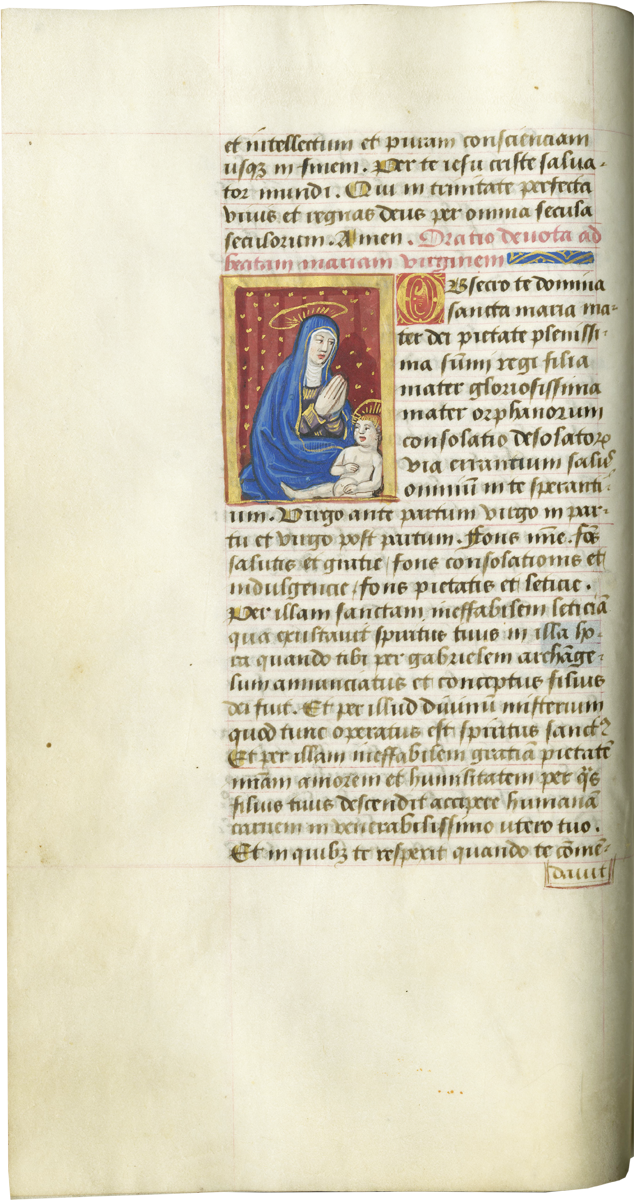 et intellectum et puram conscienciam
usqȝ in finem. Per te iesu criste salua-
tor mundi. Qui in trinitate perfecta
viuis et regnas deus per omnia secula
seculorum. Amen. Oratio deuota ad
beatam mariam virginem
OBsecro te domina
sancta maria ma-
ter dei pietate plenissi-
ma sūmi regi filia
mater gloriosissima
mater orphanorum
consolatio desolatorꝝ
via errantium salus
omniū in te speranti-
um. Virgo ante partum virgo in par-
tu et virgo post partum. Fons mīe. fōs
salutis et gratie fons consolationis et
indulgencie fons pietatis et leticie.
Per illam sanctam ineffabilem leticiā
qua exultauit spiritus tuus in illa ho-
ra quando tibi per gabrielem archāge-
lum annunciatus et conceptus filius
dei fuit. Et per illud diuinū misterium
quod tunc operatus est spiritus sanctꝰ
Et per illam ineffabilem gratiā pietatē
miām amorem et humilitatem per q̄s
filius tuus descendit accipere humanā
carnem in venerabilissimo utero tuo.
Et in quibȝ te respexit quando te cōmē-
dauit